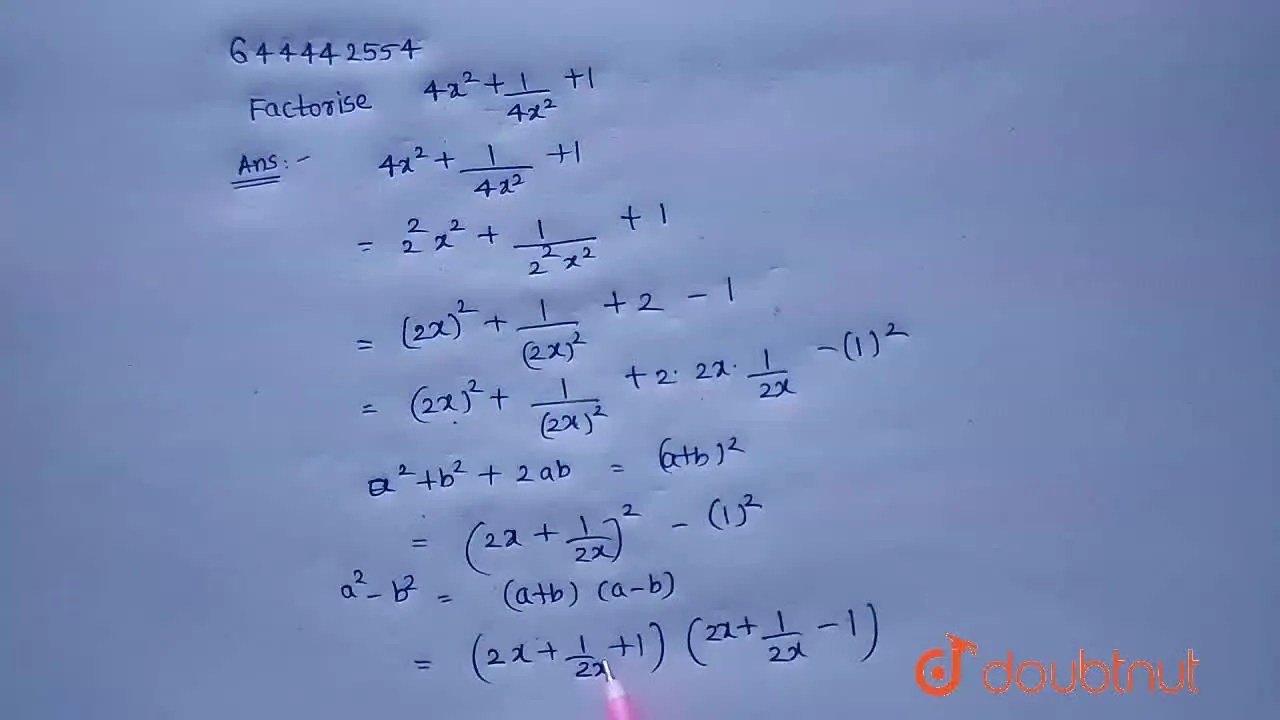 644442554
Factorise 4x² + 1/4x² + 1
Ans :- 4x² + 1/4x² + 1
= 2²x² + 1/2²x² + 1
= (2x)² + 1/(2x)² + 2 - 1
= (2x)² + 1/(2x)² + 2. 2x. 1/2x - (1)²
a² + b² + 2ab = (a+b)²
= (2x + 1/2x)² - (1)²
a² - b² = (a+b) (a-b)
= (2x + 1/2x + 1) (2x + 1/2x - 1)
doubtnut